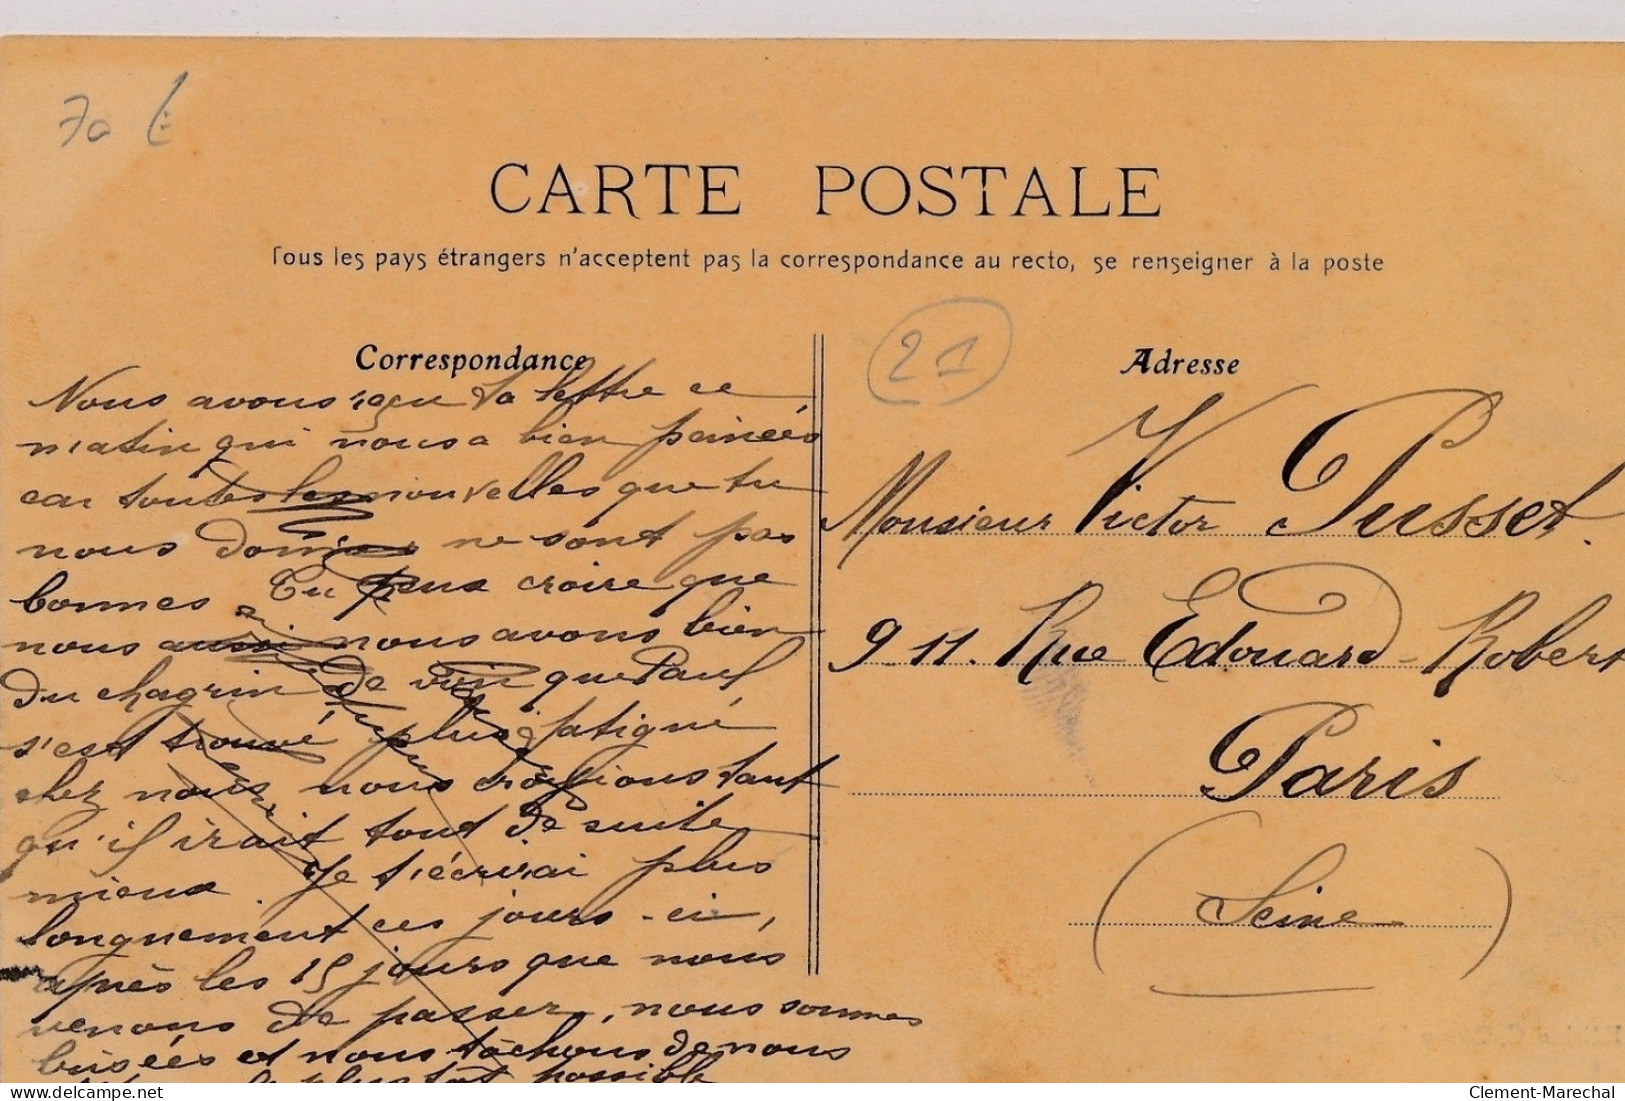 70 €
CARTE POSTALE
Tous les pays étrangers n'acceptent pas la correspondance au recto, se renseigner à la poste
Correspondance
Nous avons reçu ta lettre ce
matin qui nous a bien peinées
car toutes les nouvelles que tu
nous donnes ne sont pas
bonnes Tu peux croire que
nous aussi nous avons bien
du chagrin de voir que Paul
s'est trouvé plus fatigué
chez nous, nous croyions tant
qu'il irait tout de suite
mieux. Je t'écrirai plus
longuement ces jours-ci,
après les 15 jours que nous
venons de passer, nous sommes
brisées et nous tâchons de nous
le plus tôt possible
21
Adresse
Monsieur Victor Pusset.
9 11. Rue Edouard-Robert
Paris
(Seine)
Clement-Marechal